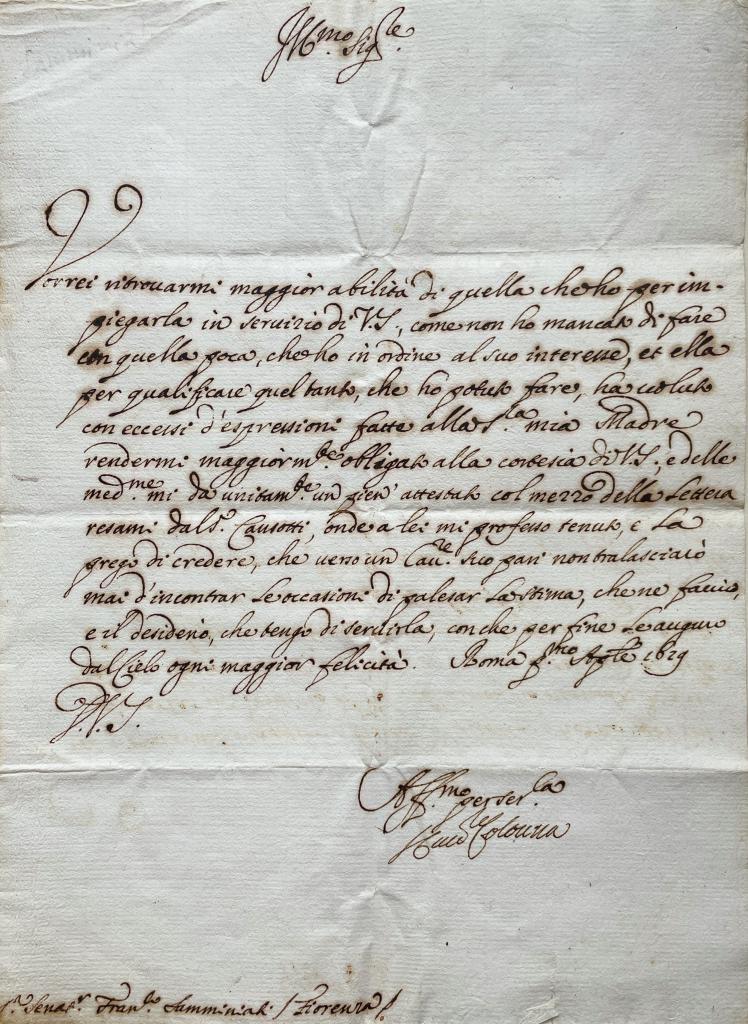 Ill.mo Sig.re
Vorrei ritrovarmi maggior abilità di quella che ho per im-
piegarla in servizio di V.S., come non ho mancato di fare
con quella poca, che ho in ordine al suo interesse, et ella
per qualificare quel tanto, che ho potuto fare, ha voluto
con eccessi d'espressioni fatte alla S.ra mia Madre
rendermi maggiorm.te obligato alla cortesia di V.S., e delle
med.me mi da unitam.te un pien' attestato col mezzo della Lettera
resami dal S.r Causotti, onde a lei mi professo tenuto, e La
prego di credere, che verso un Cav.re suo pari non tralasciarò
mai d'incontrar Le occasione di palesar La stima, che ne faccio,
e il desiderio, che tengo di servirla, con che per fine Le auguro
dal Cielo ogni maggior felicità. Roma p.mo Aple
D.V.S.
Aff.mo per ser.la
Colonna
Senat.r Fran.co Samminiati / Fiorenza /